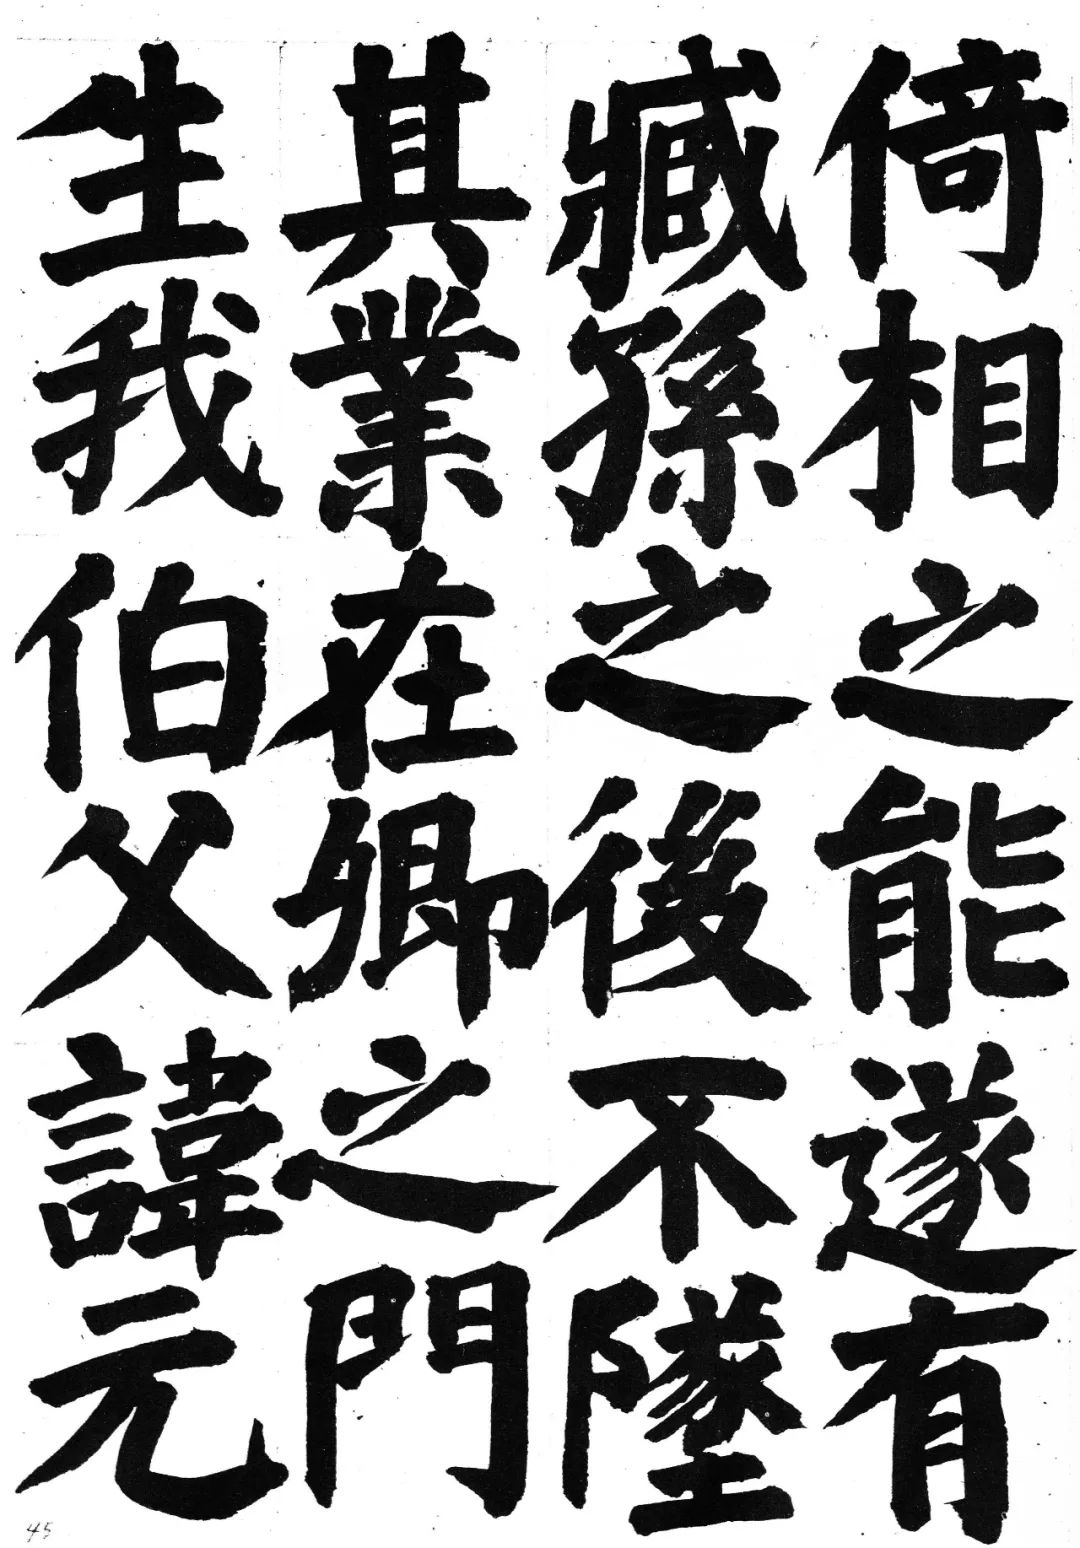 倚相之能遂有
臧孫之後不墜
其業在卿之門
生我伯父諱元
45